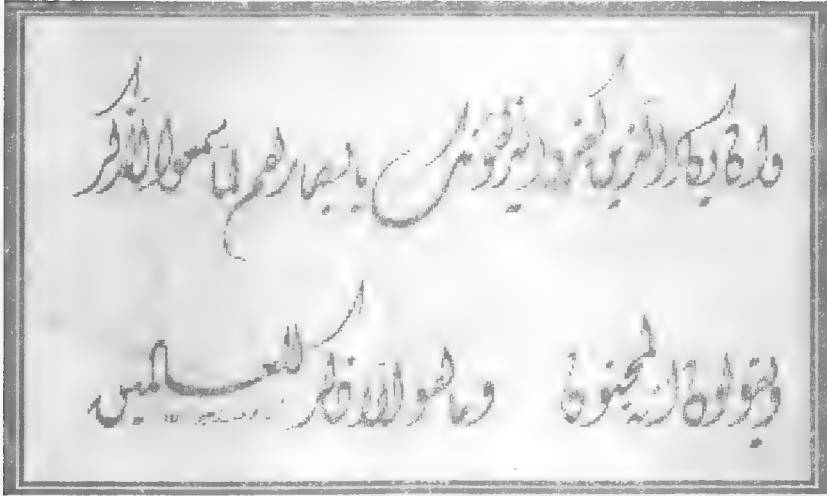 وان یکاد الذین کفروا لیزلقونک بابصارهم لما سمعوا الذکر
ویقولون انه لمجنون وما هو الا ذکر للعالمین